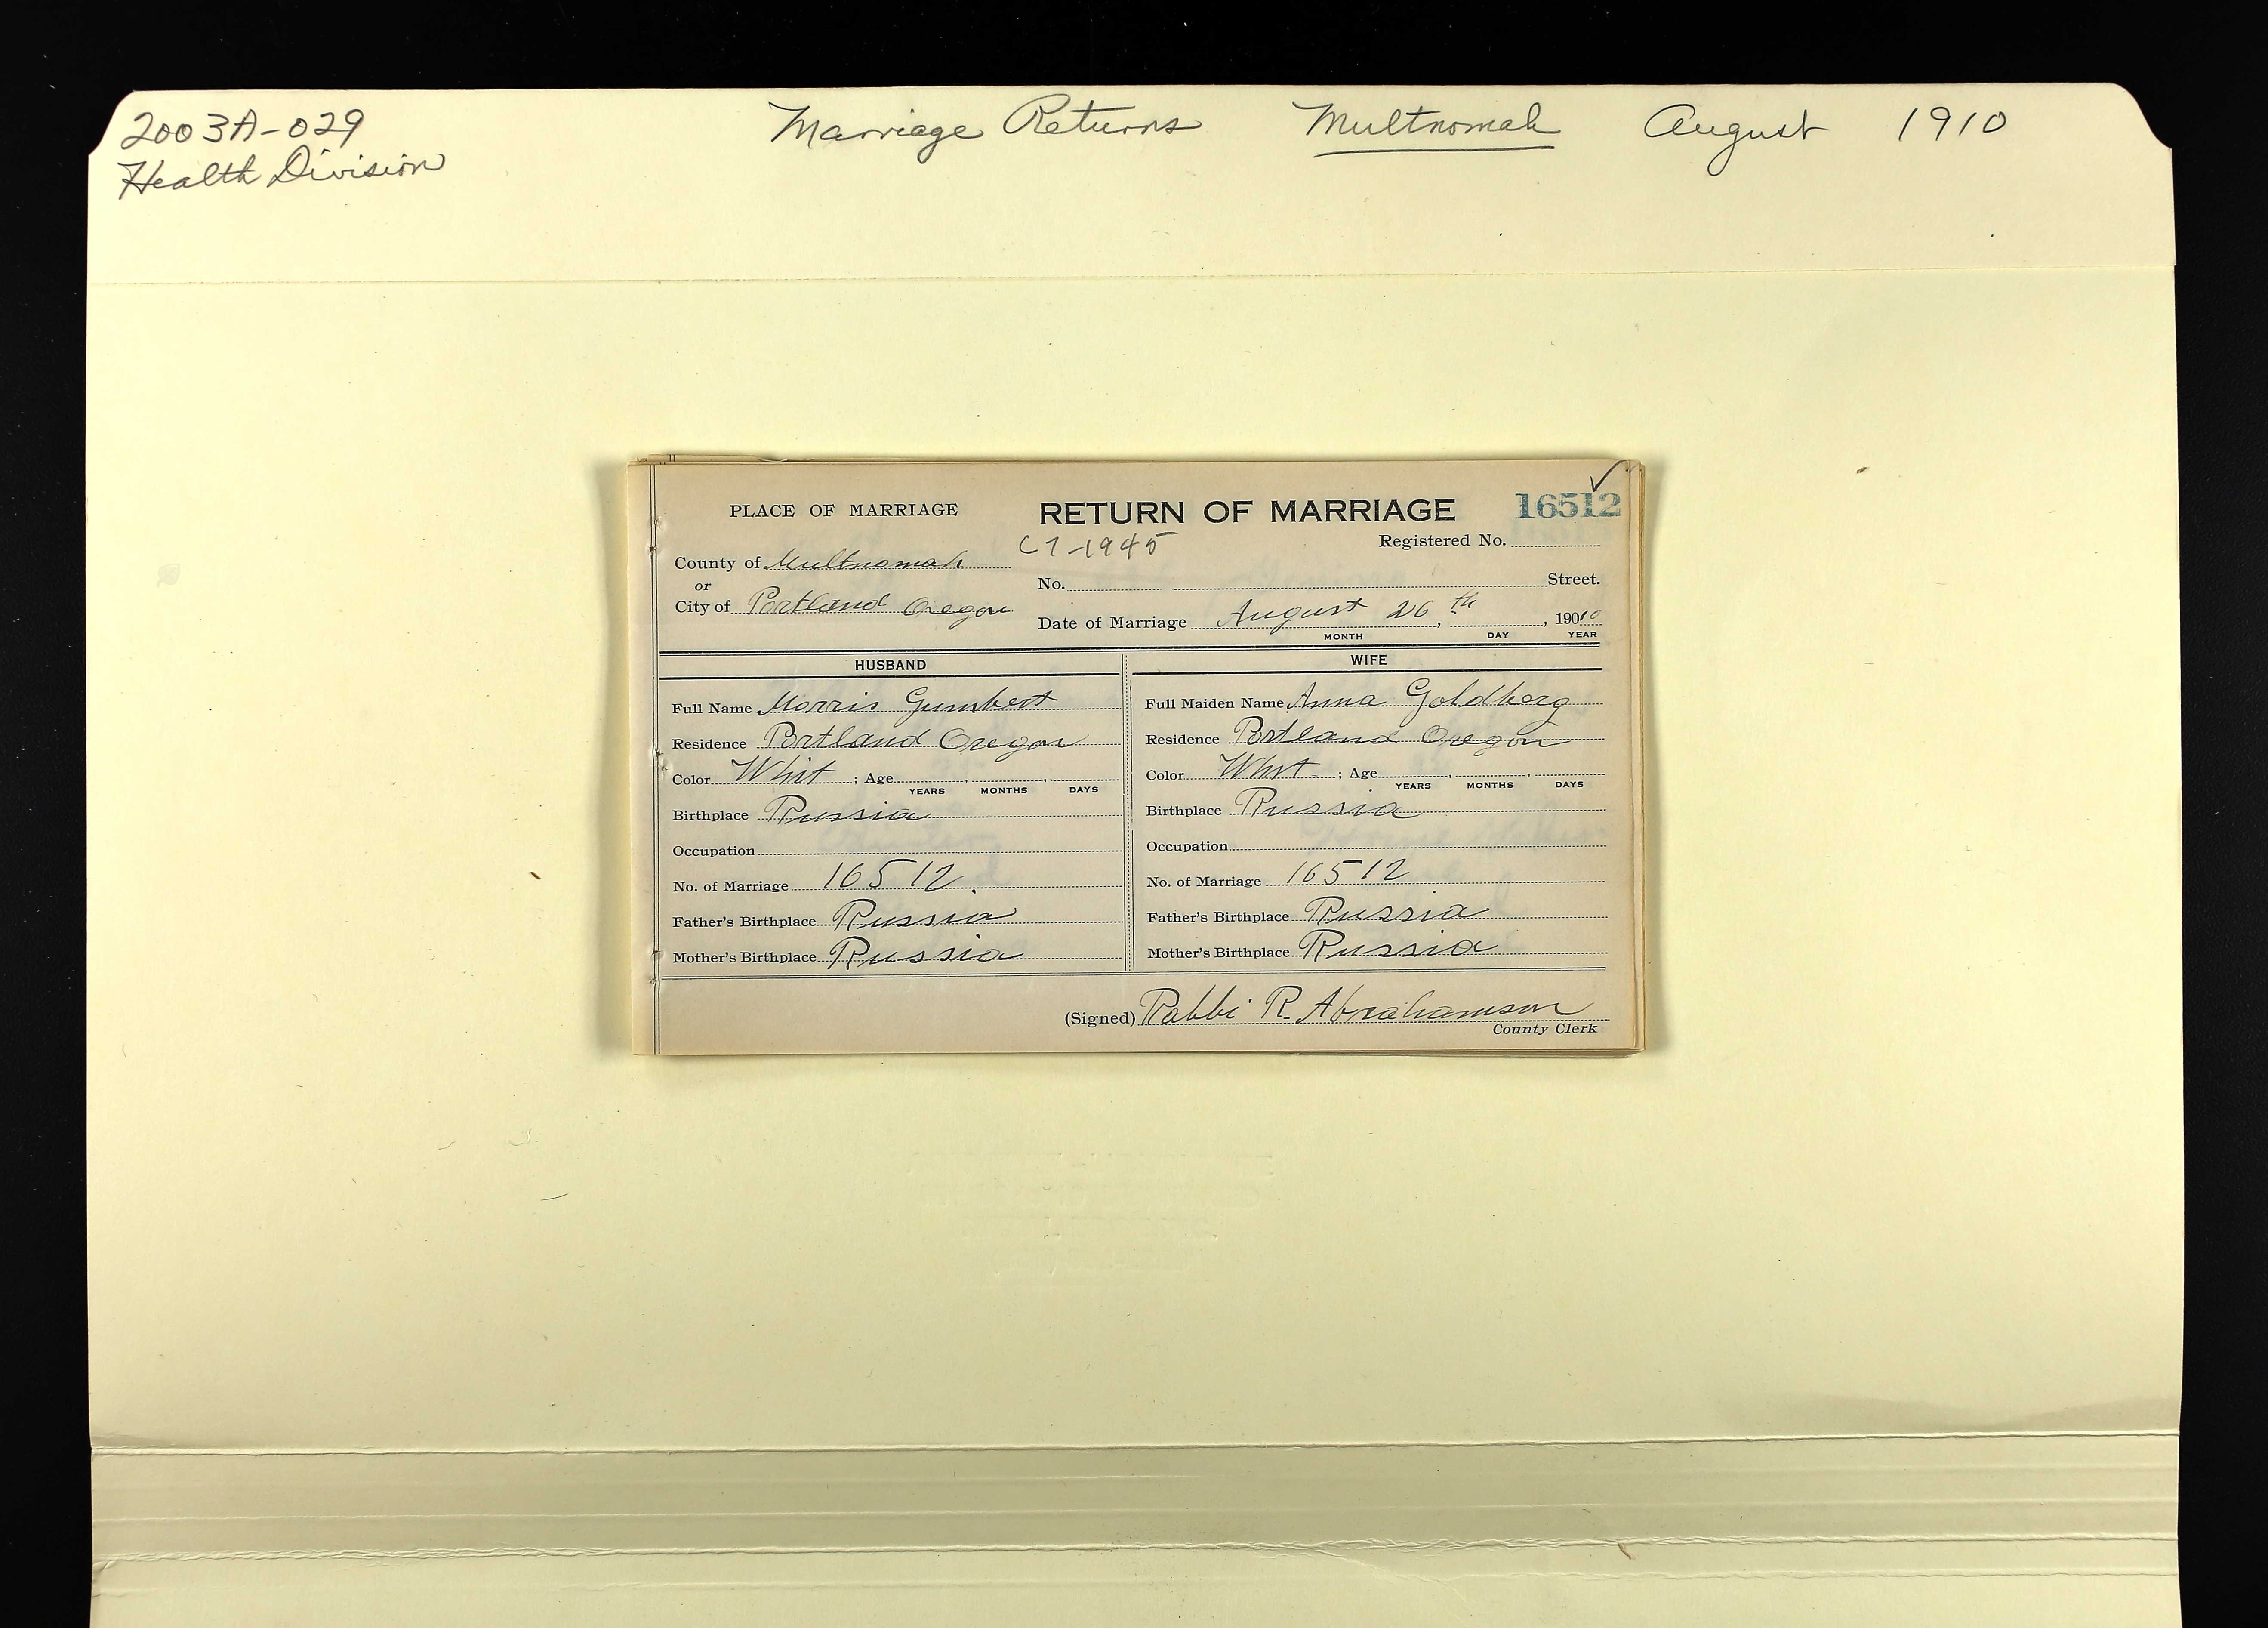 2003A-029
Health Division
Marriage Returns Multnomah August 1910
PLACE OF MARRIAGE
RETURN OF MARRIAGE
16512
C7-1945
Registered No.
County of Multnomah
or
City of Portland Oregon
No. Street.
Date of Marriage August 26, th, 19010
MONTH DAY YEAR
HUSBAND
Full Name Morris Gumbert
Residence Portland Oregon
Color Whit ; Age
YEARS MONTHS DAYS
Birthplace Russia
Occupation
No. of Marriage 16512.
Father's Birthplace Russia
Mother's Birthplace Russia
WIFE
Full Maiden Name Anna Goldberg
Residence Portland Oregon
Color Whit ; Age
YEARS MONTHS DAYS
Birthplace Russia
Occupation
No. of Marriage 16512
Father's Birthplace Russia
Mother's Birthplace Russia
(Signed) Rabbi R. Abrahamson
County Clerk